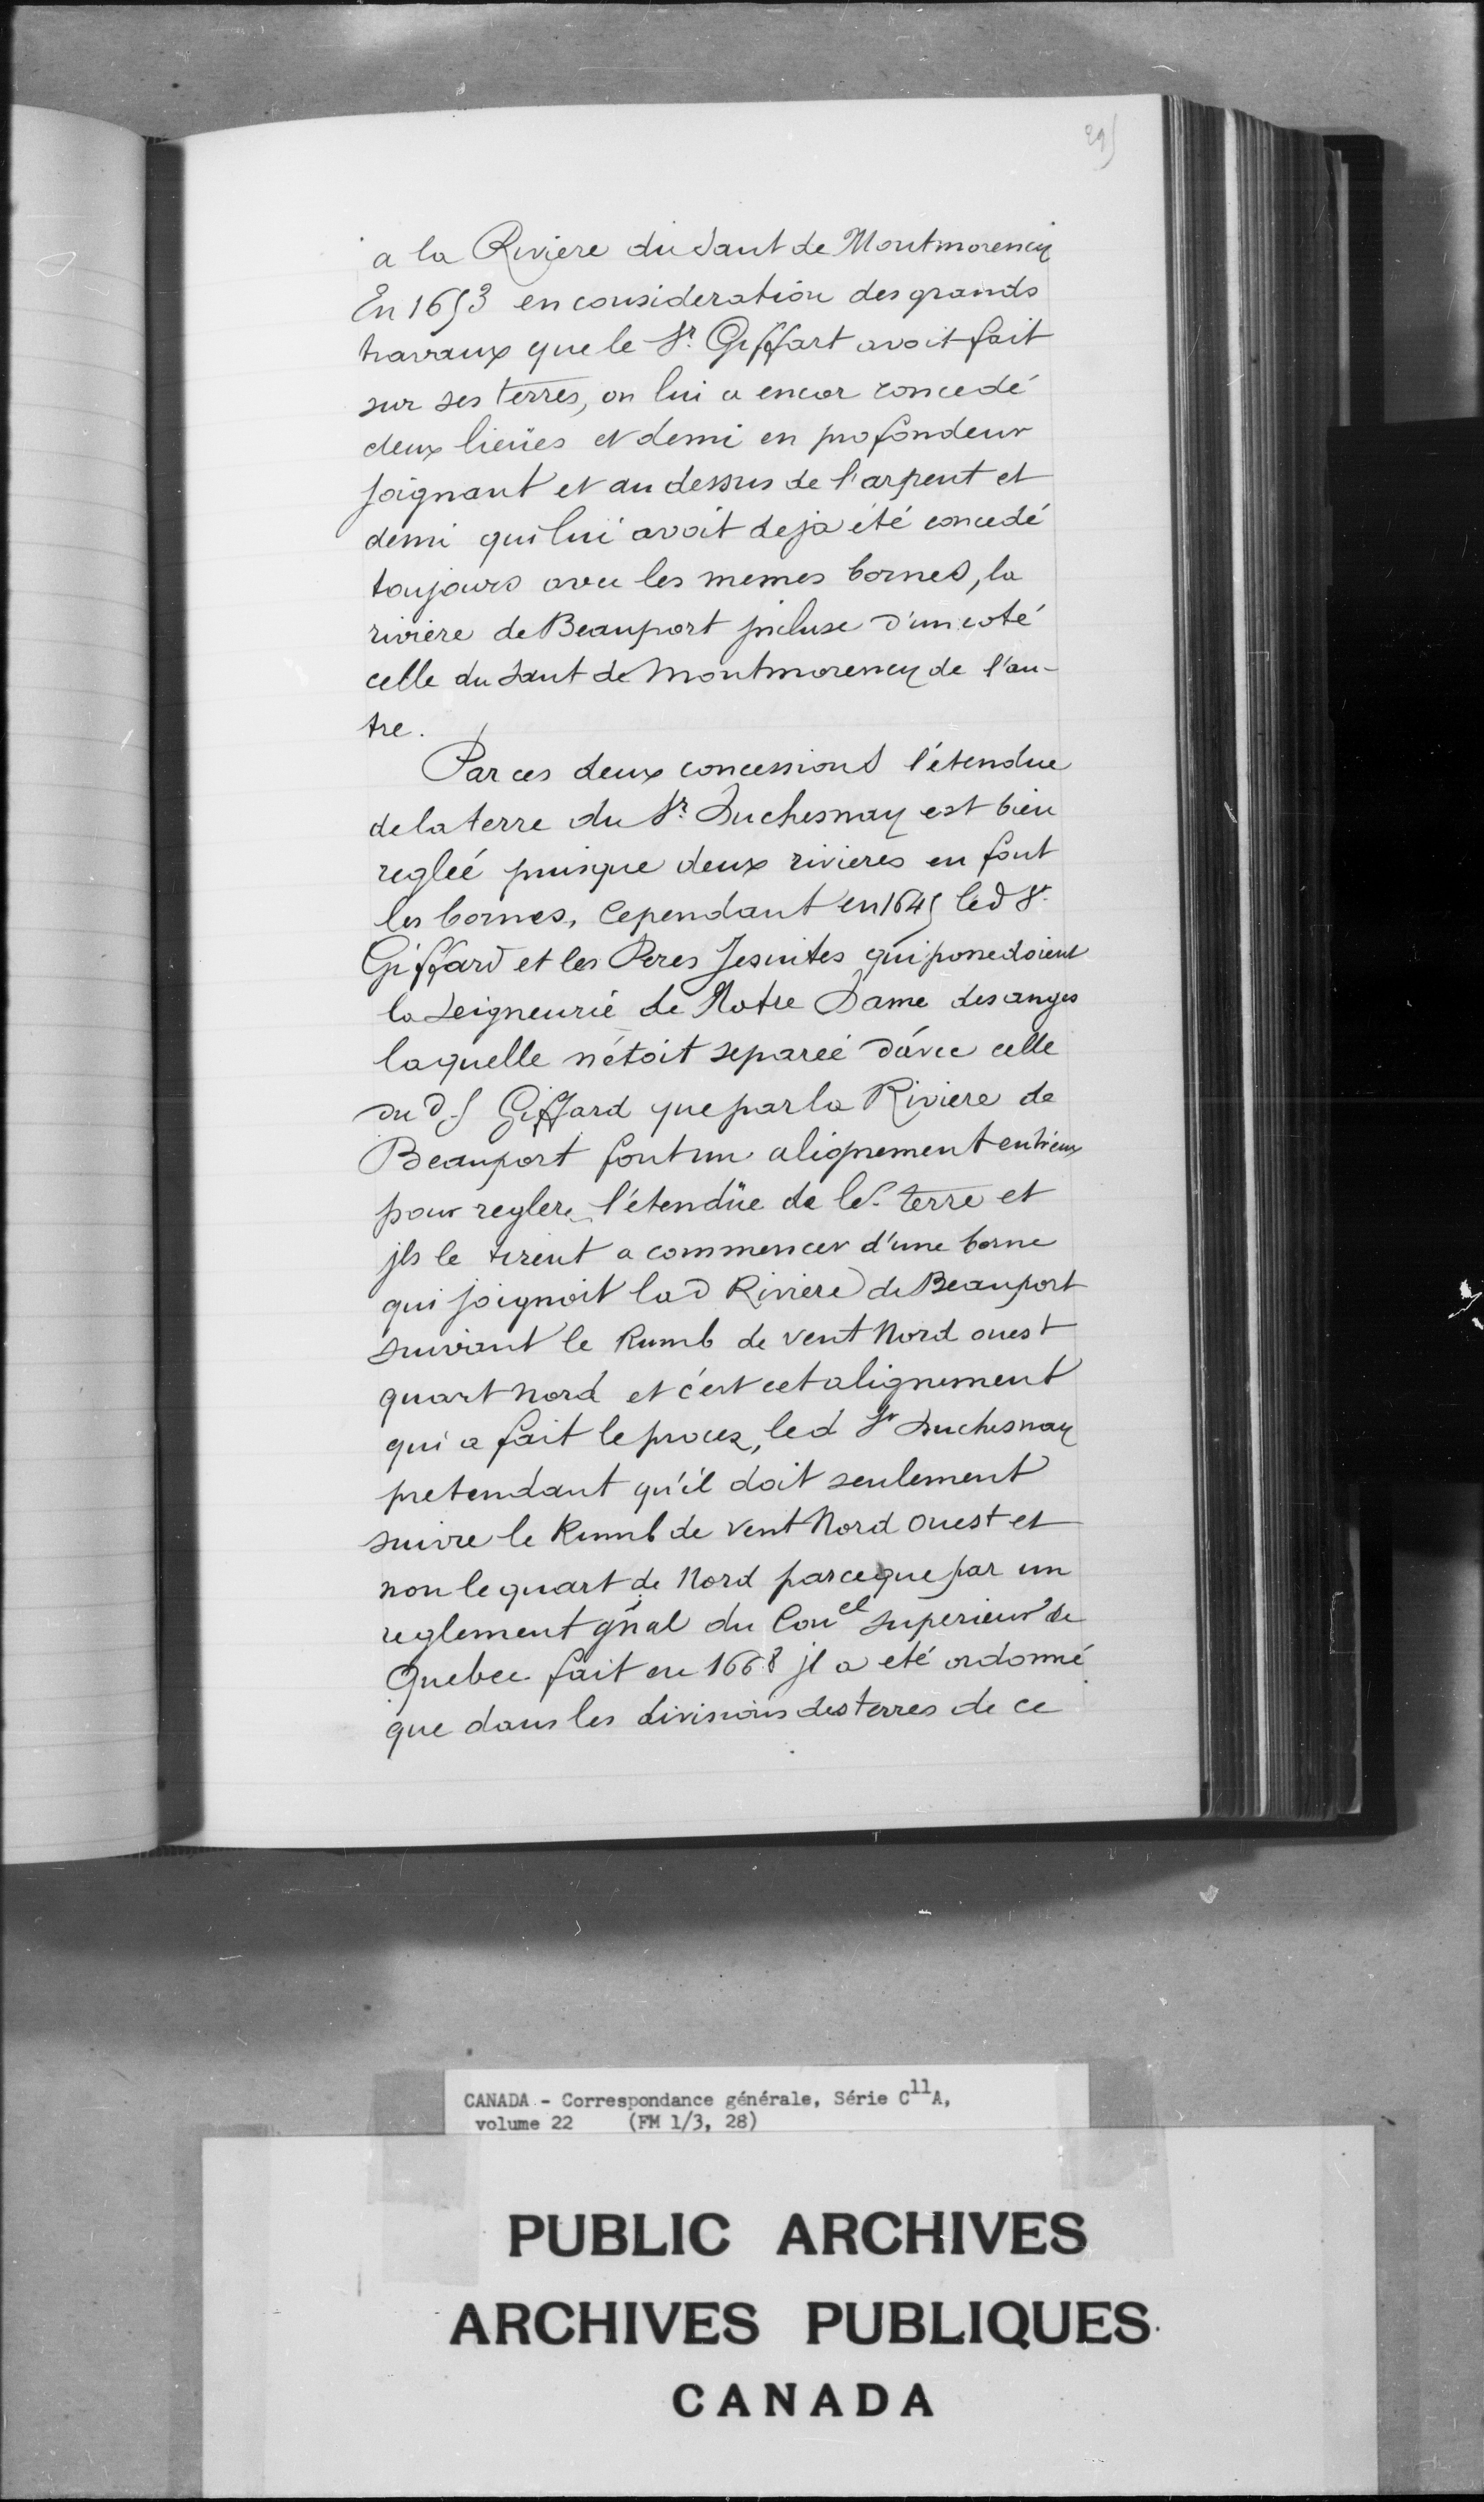 295
a la Riviere du Saut de Montmorency
En 1653 en consideration des grands
travaux que le Sr. Giffart avoit fait
sur ses terres, on lui a encor concedé
deux lieües et demi en profondeur
joignant et au dessus de l'arpent et
demi qui lui avoit deja été concedé
toujours avec les memes bornes, la
riviere de Beauport jncluse d'un coté
celle du Saut de Montmorency de l'au-
tre.
Par ces deux concessions l'étendue
de la terre du Sr. Duchesnay est bien
regleé puisque deux rivieres en font
les bornes, Cependant en 1645 led Sr.
Giffard et les Peres Jesuites qui possedoient
la Seigneurie de Notre Dame des anges
laquelle n'étoit separeé d'avec celle
du d. S Giffard que par la Riviere de
Beauport font un alignement entr'eux
pour regler l'étendüe de le. terre et
jls le tirent a commencer d'une borne
qui joignoit lad Riviere de Beauport
suivant le Rumb de vent Nord ouest
quart nord et c'est cet alignement
qui a fait le procez, led Sr Duchesnay
pretendant qu'il doit seulement
suivre le Rumb de vent Nord ouest et
non le quart de Nord parceque par un
reglement gñal du Con.el Superieur de
Quebec fait en 1668 jl a eté ordonné
que dans les divisions des terres de ce
CANADA - Correspondance générale, Série C11A,
volume 22 (FM 1/3, 28)
PUBLIC ARCHIVES
ARCHIVES PUBLIQUES
CANADA